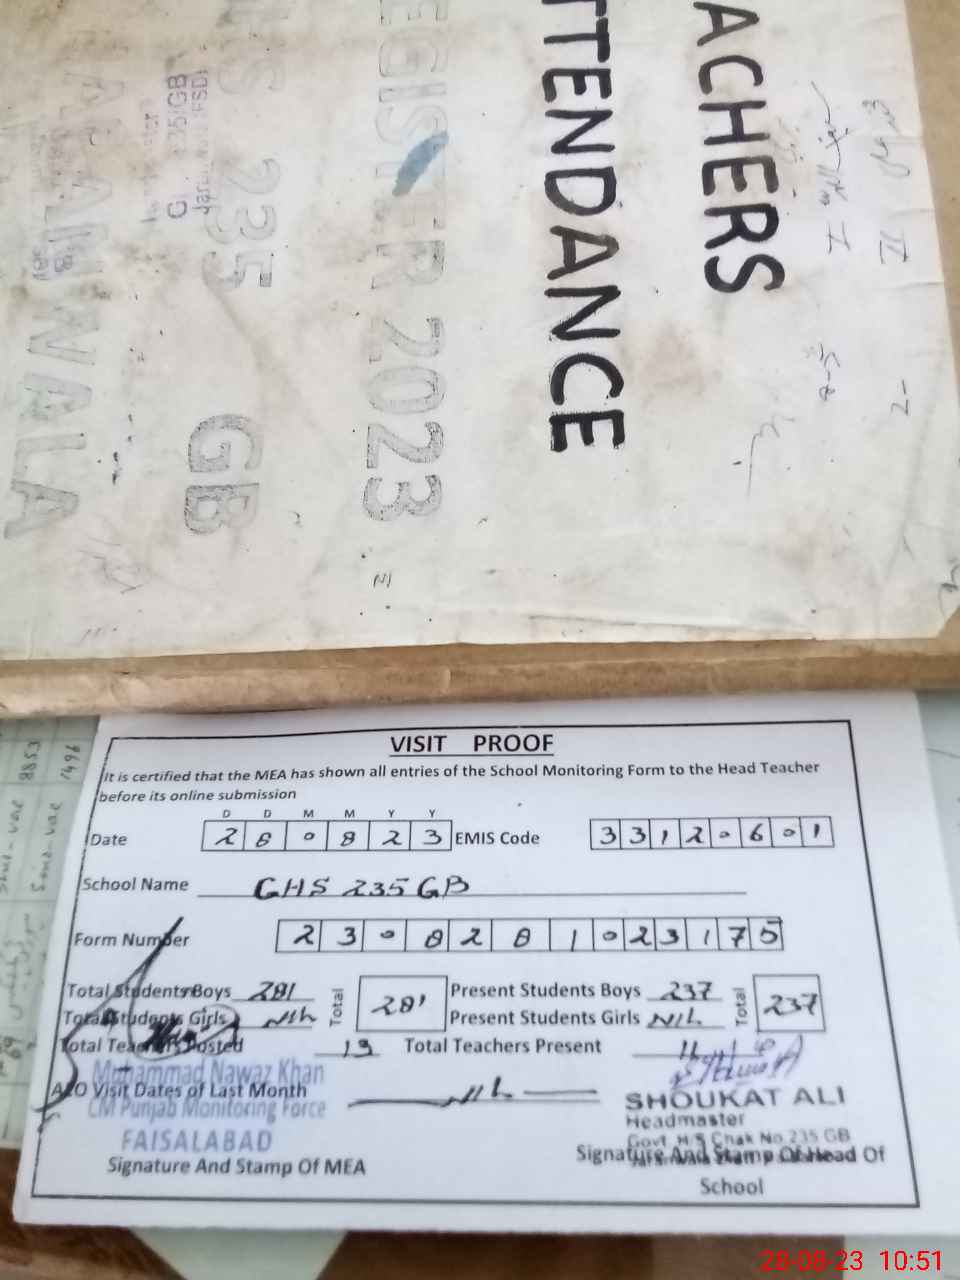 ACHERS
TTENDANCE
EGISTER 2023
HS 235 GB
JARANWALA
VISIT PROOF
It is certified that the MEA has shown all entries of the School Monitoring Form to the Head Teacher
before its online submission
D D M M Y Y
Date 28 08 23 EMIS Code 33120601
School Name GHS 235 GB
Form Number 2308281023175
Total Students Boys 281 Total 281 Present Students Boys 237 Total 237
Total Students Girls Nil Present Students Girls NIL
Total Teachers Posted 13 Total Teachers Present 11
AEO Visit Dates of Last Month NIL
Muhammad Nawaz Khan
CM Punjab Monitoring Force
FAISALABAD
Signature And Stamp Of MEA
SHOUKAT ALI
Headmaster
Govt. H/S Chak No.235 GB
Signature And Stamp Of Head Of
School
28-08-23 10:51